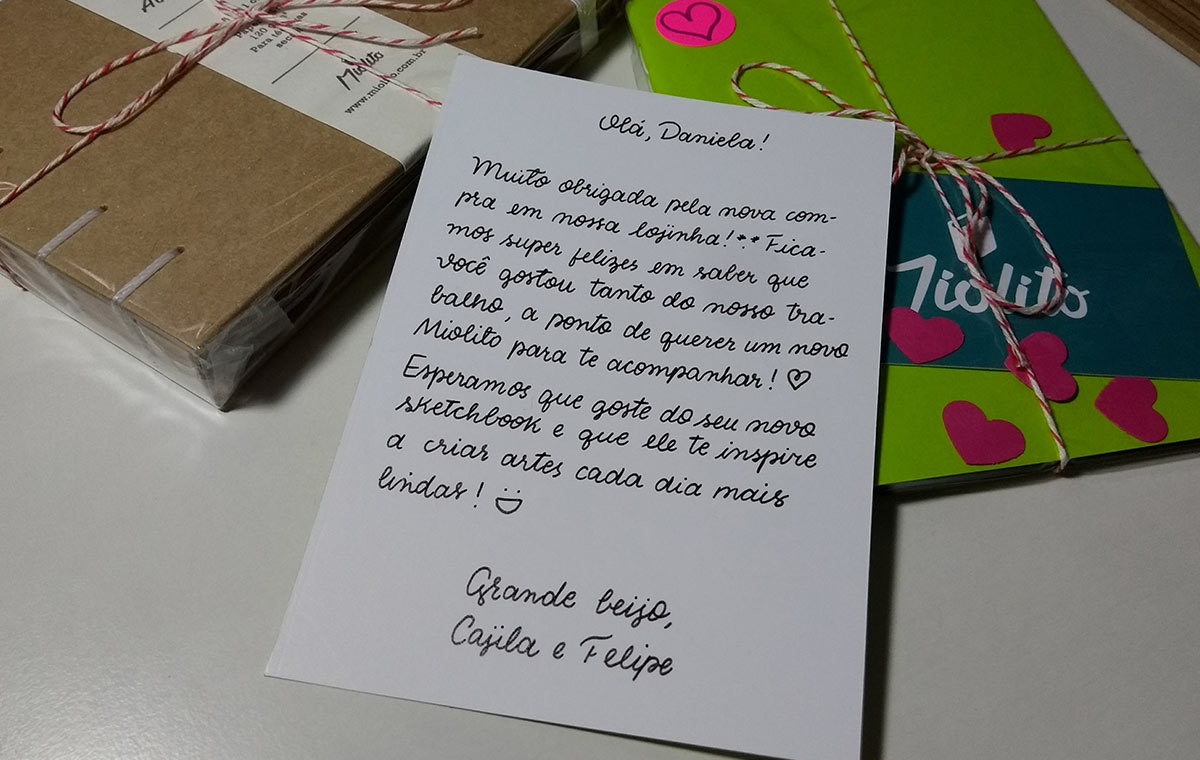 Pap
120 g
Para té
sec
Miolito
www.miolito.com.br
Olá, Daniela!
Muito obrigada pela nova com-
pra em nossa lojinha! Fica-
mos super felizes em saber que
você gostou tanto do nosso tra-
balho, a ponto de querer um novo
Miolito para te acompanhar! ♡
Esperamos que goste do seu novo
sketchbook e que ele te inspire
a criar artes cada dia mais
lindas! :D
Grande beijo,
e Felipe
Miolito